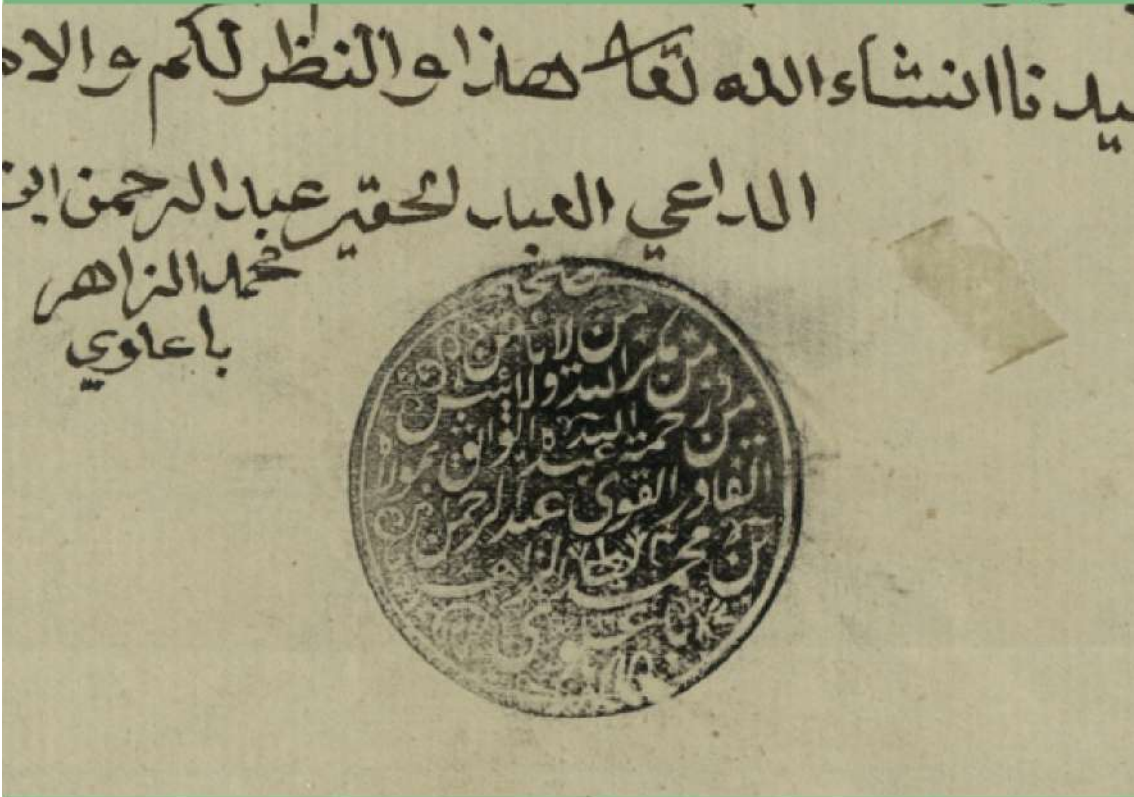 يدنا انشاء الله تعا هذا والنظر لكم والا
الداعي العبد الحقير عبد الرحمن ابن
محمد الزاهر
باعلوي
من لا نا من
من مكر الله ولا
من رحمة الله عبده الواثق بمولاه
القادر القوي عبد الرحمن
بن محمد الزاهر